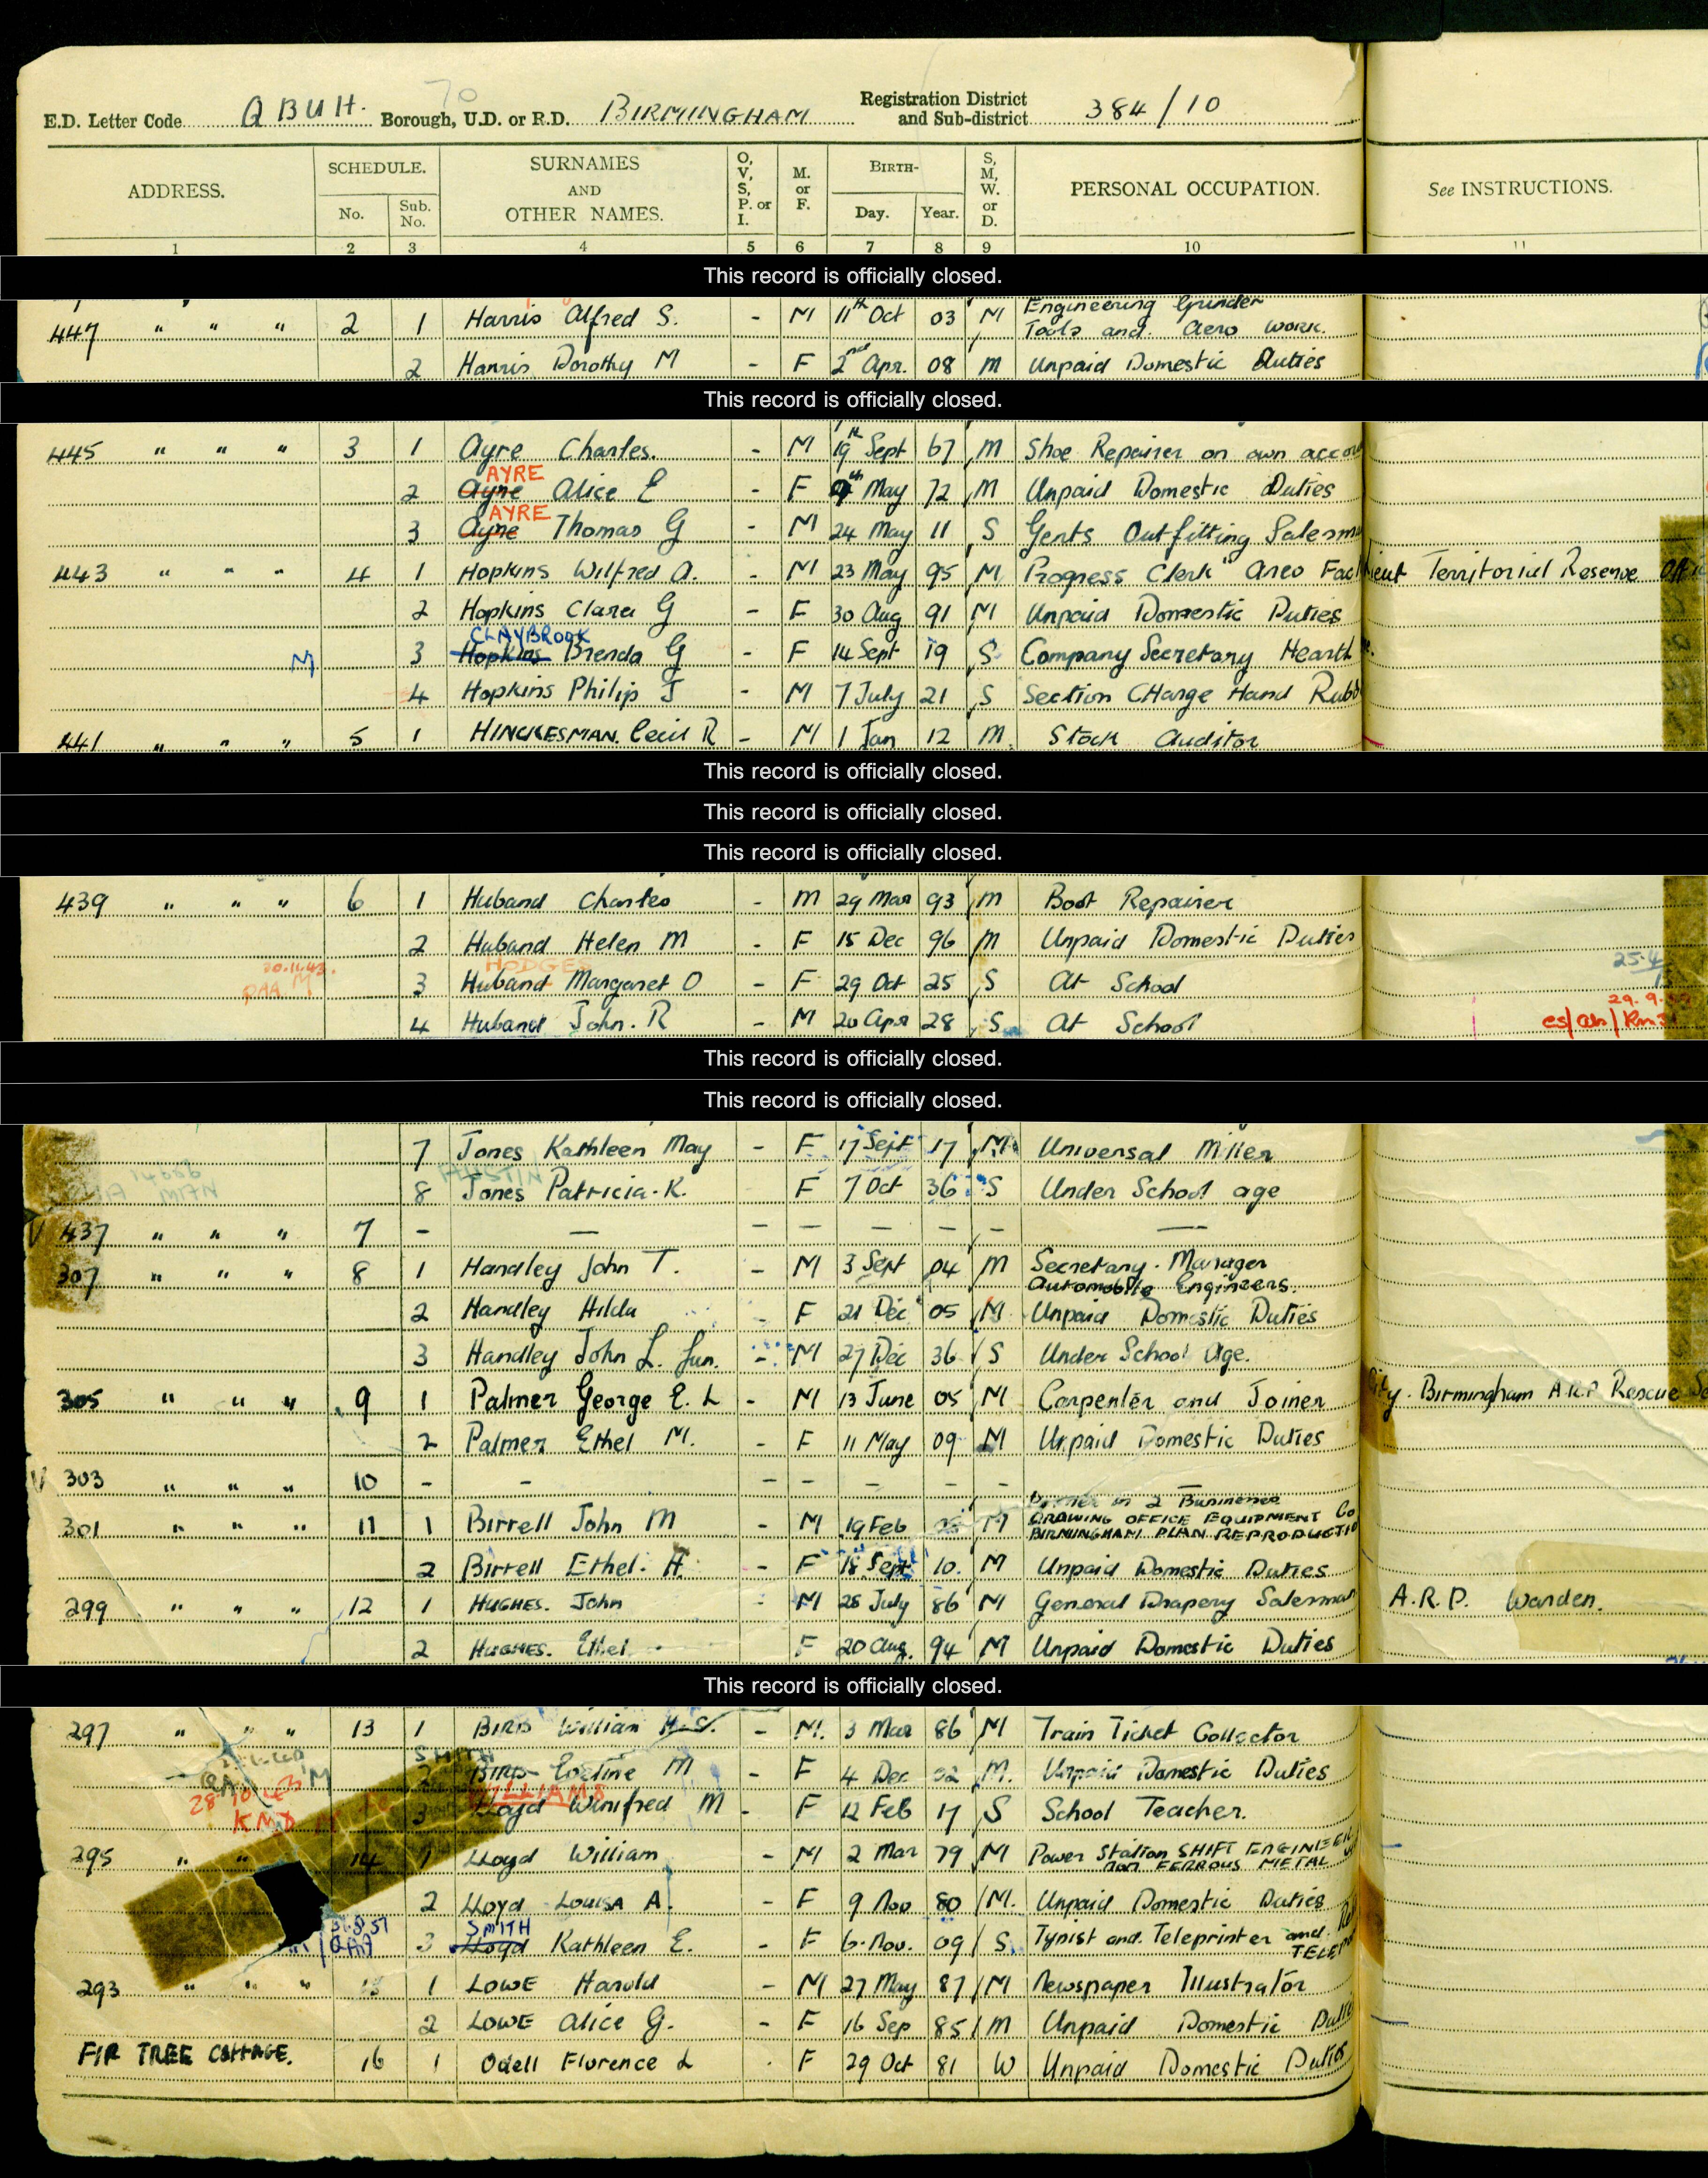 70
E.D. Letter Code QBUH. Borough, U.D. or R.D. BIRMINGHAM Registration District and Sub-district 384/10
ADDRESS. SCHEDULE. No. Sub. No. SURNAMES AND OTHER NAMES. O, V, S, P. or I. M. or F. BIRTH- Day. Year. S, M, W. or D. PERSONAL OCCUPATION. See INSTRUCTIONS.
1 2 3 4 5 6 7 8 9 10 11
This record is officially closed.
447 " " " 2 1 Harris Alfred S. - M 11th Oct 03 M Engineering Grinder Tools and Aero work.
2 Harris Dorothy M - F 2nd Apr. 08 M Unpaid Domestic Duties
This record is officially closed.
445 " " " 3 1 Ayre Charles. - M 19th Sept 67 M Shoe Repairer on own accou
AYRE
2 Ayre Alice E - F th May 72 M Unpaid Domestic Duties
AYRE
3 Ayre Thomas G - M 24 May 11 S Gents Outfitting Salesma
443 " " " 4 1 Hopkins Wilfred A. - M 23 May 95 M Progress Clerk Areo Fac Territorial Reserve
2 Hopkins Clara G - F 30 Aug 91 M Unpaid Domestic Duties
CLAYBROOK
M 3 Hopkins Brenda G - F 14 Sept 19 S Company Secretary Hearth
4 Hopkins Philip J - M 7 July 21 S Section CHarge Hand Rubb
441 " " " 5 1 HINCKESMAN. Cecil R - M 1 Jan 12 M. Stock Auditor
This record is officially closed.
This record is officially closed.
This record is officially closed.
439 " " " 6 1 Huband Charles - M 29 Mar 93 M Boot Repairer
2 Huband Helen M - F 15 Dec 96 M Unpaid Domestic Duties
20.11.43. HODGES
3 Huband Margaret O - F 29 Oct 25 S At School
4 Huband John. R - M 20 Apr 28 S At School
This record is officially closed.
This record is officially closed.
7 Jones Kathleen May - F 17 Sept 17 M Universal Miller
AUSTIN
8 Jones Patricia. K. F 7 Oct 36 S Under School age
V 437 " " " 7 - — - - - - - —
307 " " " 8 1 Handley John T. - M 3 Sept 04 M Secretary. Manager Automobile Engineers.
2 Handley Hilda - F 21 Dec 05 M Unpaid Domestic Duties
3 Handley John L. Jun. - M 27 Dec 36 S Under School Age.
305 " " " 9 1 Palmer George E. L - M 13 June 05 M Carpenter and Joiner City. Birmingham A.R.P. Rescue
2 Palmer Ethel M. - F 11 May 09 M Unpaid Domestic Duties
V 303 " " " 10 - - - - - - -
301 " " " 11 1 Birrell John M - M 19 Feb M in 2 Business DRAWING OFFICE EQUIPMENT Co BIRMINGHAM PLAN REPRODUCTIO
2 Birrell Ethel. H. - F 18 Sept 10. M Unpaid Domestic Duties
299 " " " 12 1 HUGHES. John - M 28 July 86 M General Drapery Salesman A.R.P. Warden.
2 HUGHES. Ethel - F 20 Aug. 94 M Unpaid Domestic Duties
This record is officially closed.
297 " " " 13 1 BIRD William H.S. - M. 3 Mar 86 M Train Ticket Collector
SMITH
2 BIRD Eveline M - F 4 Dec 02 M. Unpaid Domestic Duties
WILLIAMS
3 Lloyd Winifred M - F 12 Feb 17 S School Teacher.
295 " " 14 1 Lloyd William - M 2 Mar 79 M Power Station SHIFT ENGINEER NON FERROUS METAL
2 Lloyd Louisa A. - F 9 Nov 80 M. Unpaid Domestic Duties
SMITH
3 Lloyd Kathleen E. - F 6. Nov. 09 S Typist and Teleprinter and
293 " " " 15 1 LOWE Harold - M 27 May 87 M Newspaper Illustrator
2 LOWE Alice G. - F 16 Sep 85 M Unpaid Domestic Duties
FIR TREE COTTAGE. 16 1 Odell Florence L . F 29 Oct 81 W Unpaid Domestic Duties